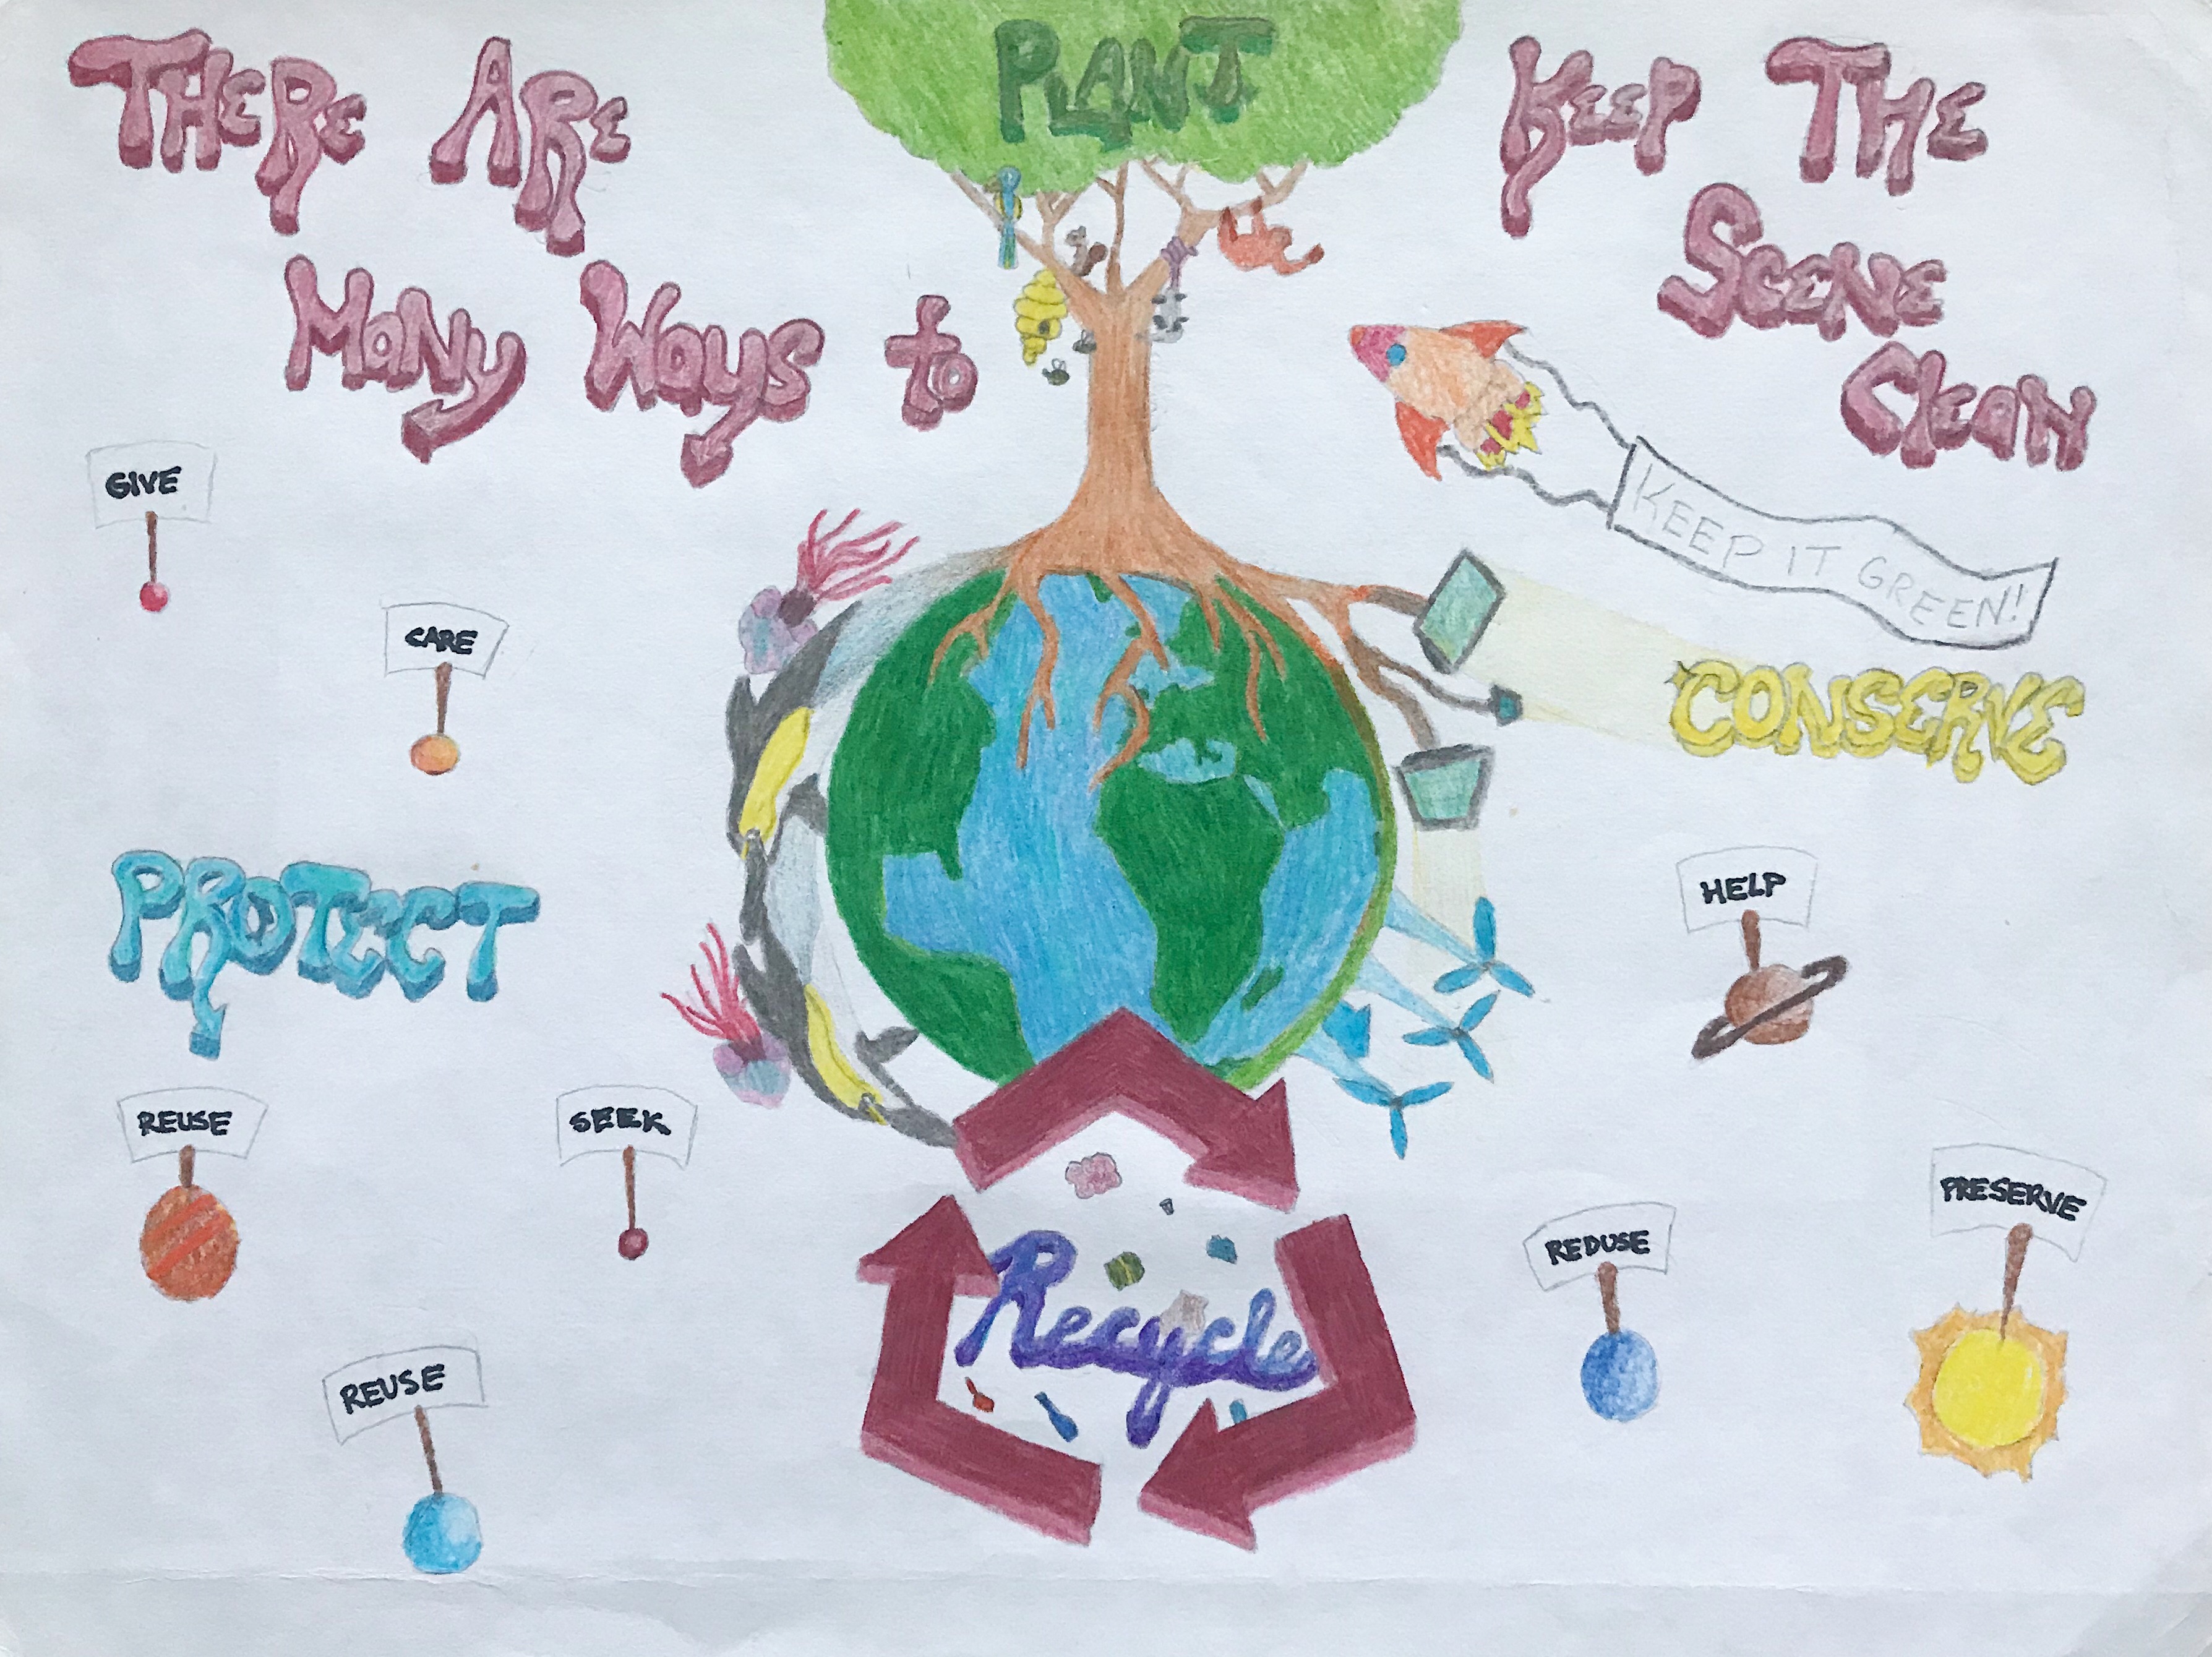 THERE ARE
MANY WAYS to
PLANT
KEEP THE
SCENE
CLEAN
KEEP IT GREEN!
GIVE
CARE
CONSERVE
PROTECT
HELP
REUSE
SEEK
PRESERVE
REDUSE
Recycle
REUSE